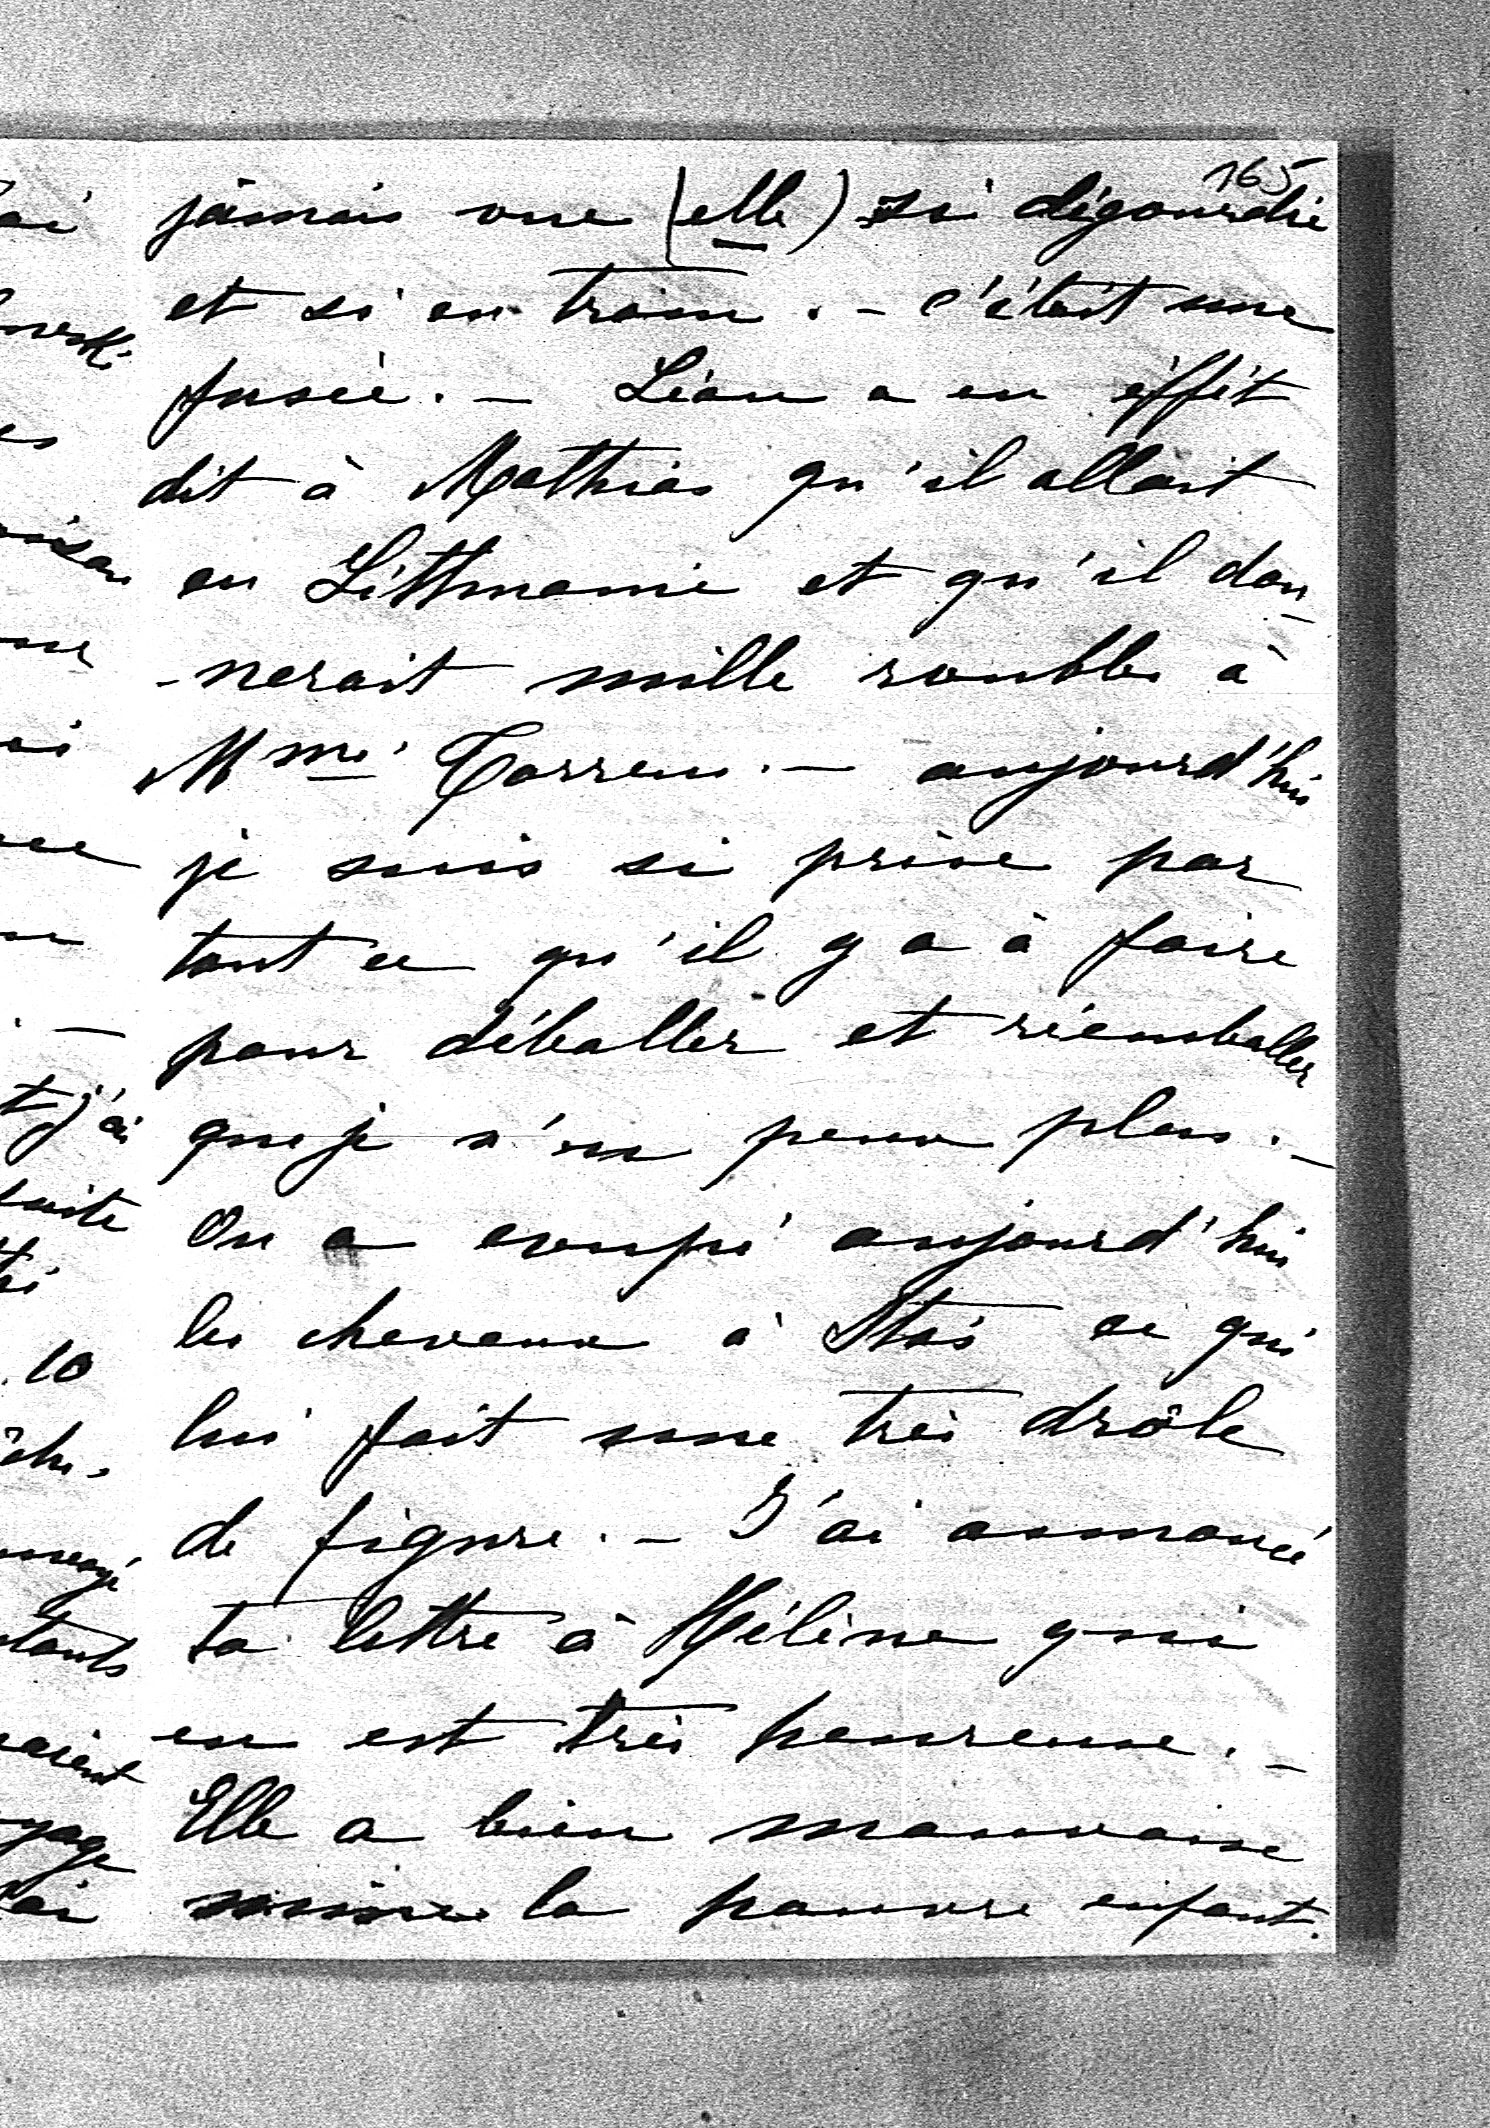 165
jamais vue (elle) si dégourdie
et si en train. - c'était une
fusée. - Léon a en éffét
dit à Mathias qu'il allait
en Litthuanie et qu'il don
-nerait mille roubles à
Mme Correns. - aujourd'hui
je suis si prise par
tout ce qu'il y a à faire
pour déballer et réemballer
que je n'en peux plus. -
On a coupé aujourd'hui
les cheveux à Stas ce qui
lui fait une très drôle
de figure. - J'ai annoncé
ta lettre à Hélène qui
en est très heureuse. -
Elle a bien mauvaise
mine la pauvre enfant.